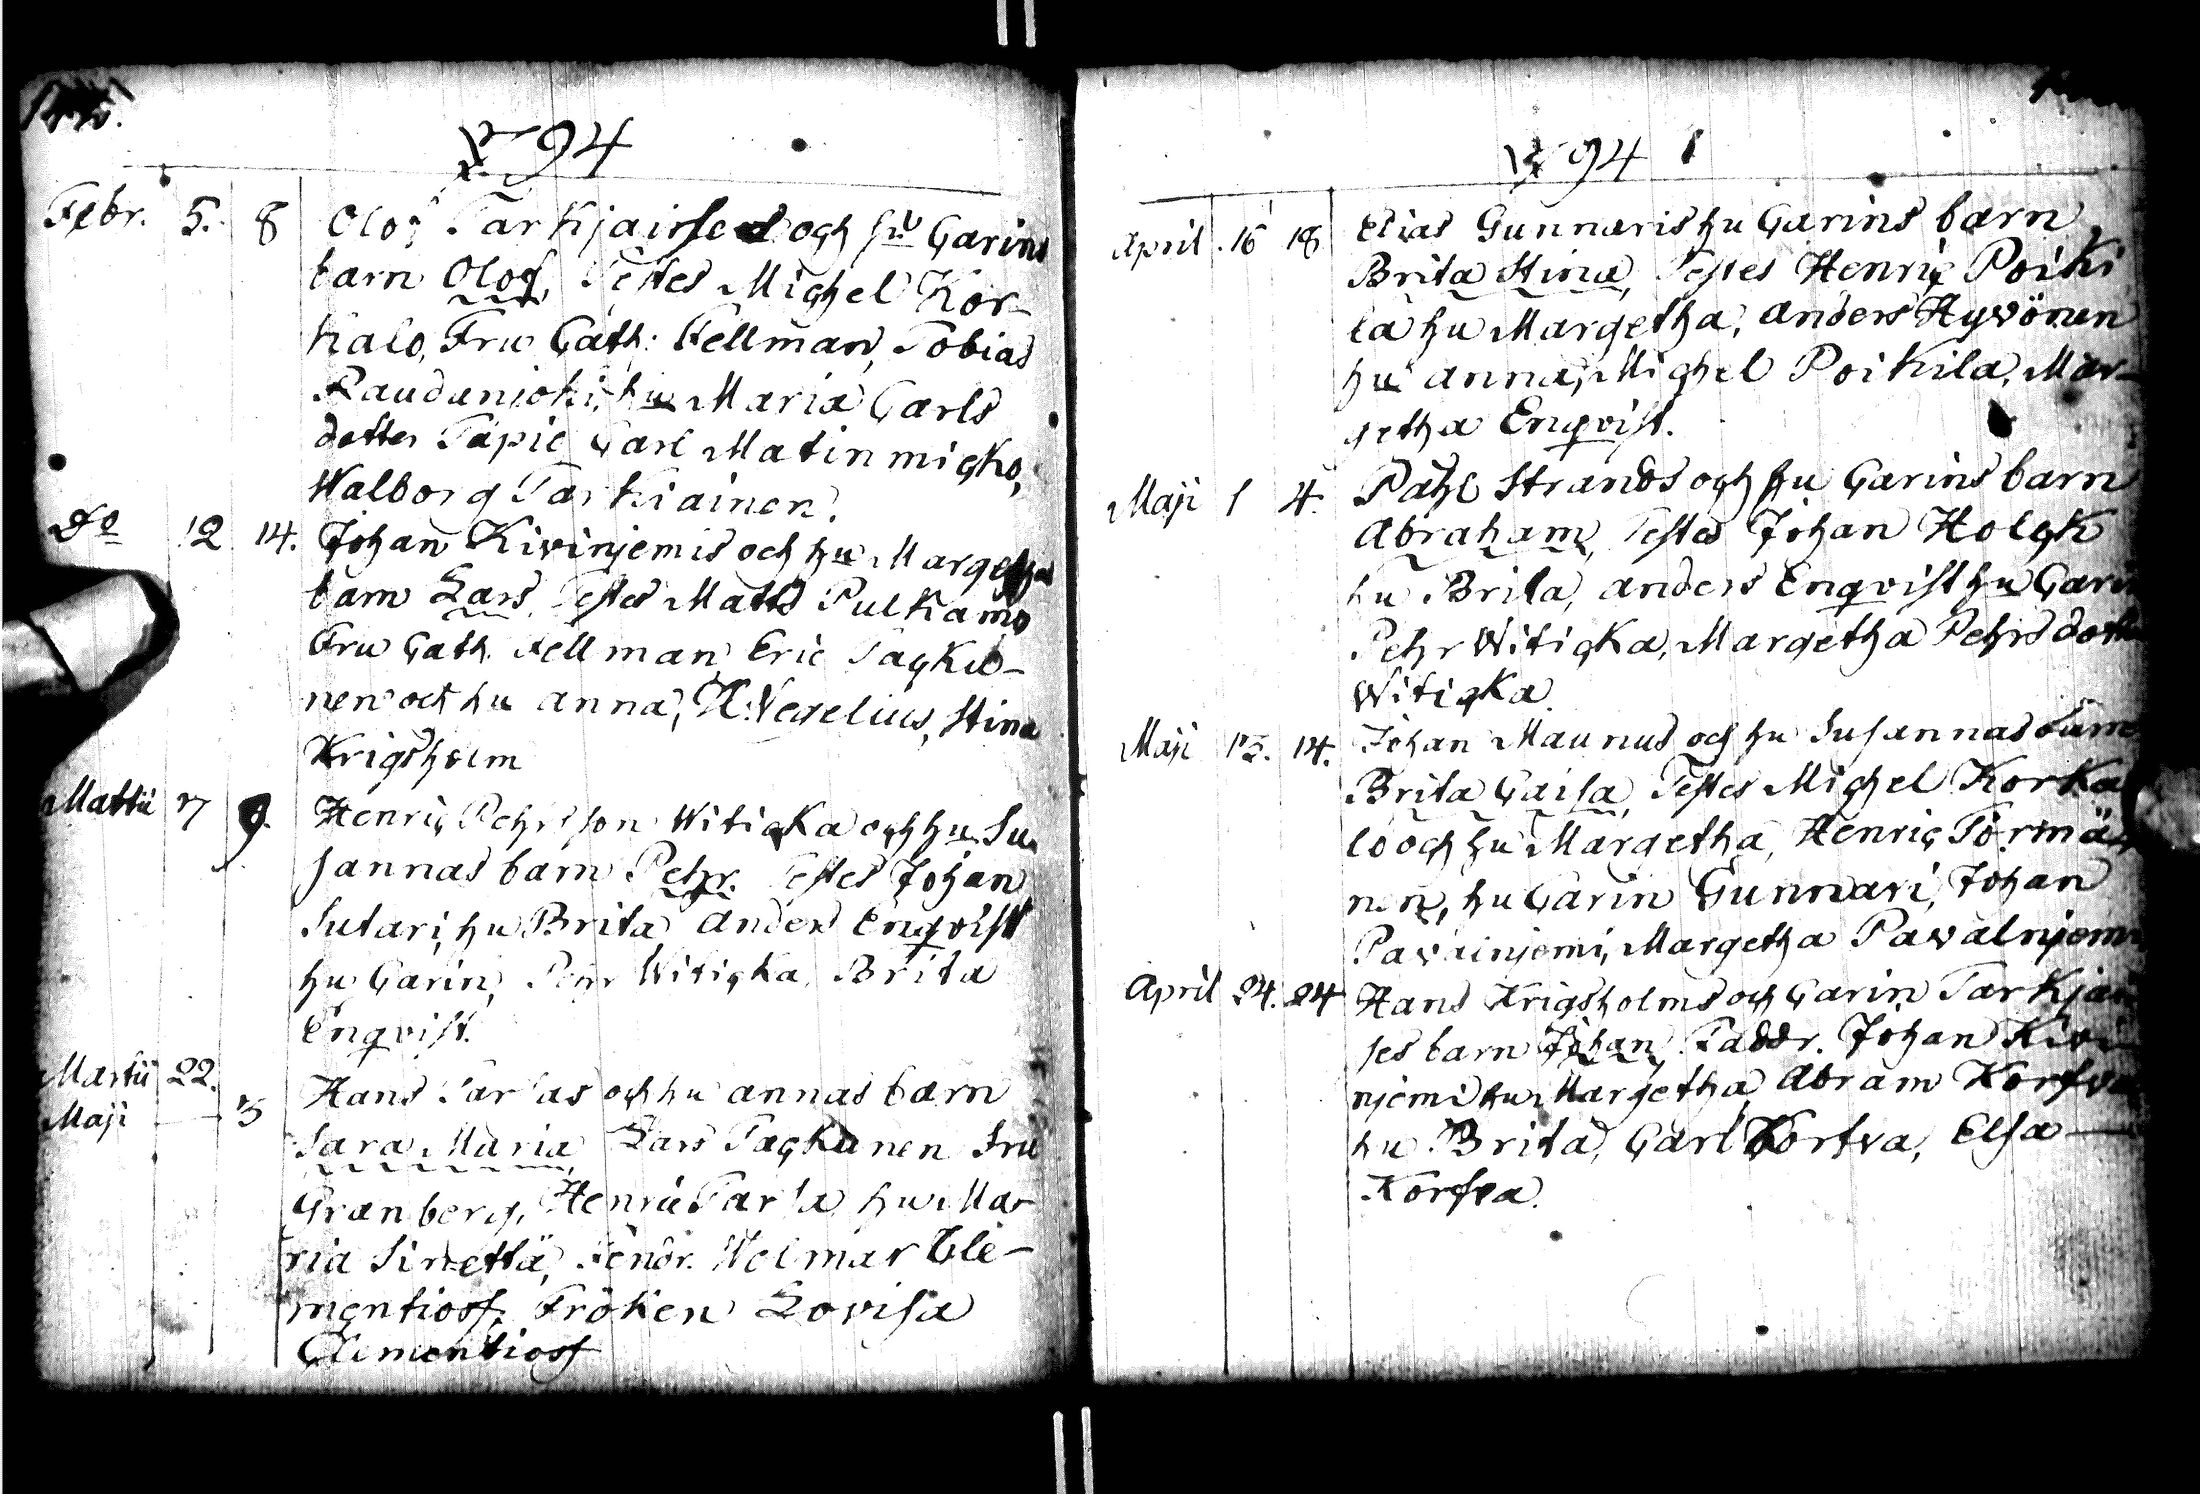 1794
Febr. 5. 8 Olof Tarkjainsen och hu Carins
barn Olof, Testes Michel Kor-
kalo, Fru Cath: Fellman, Tobias
Raudunjoki, hu Maria Carls
dotter Tapio Carl Matinmicko,
Walborg Tarkiainen.
Do 12 14. Johan Kivinjemis och hu Margetha
barn Lars, Testes Matts Pulkamo
Fru Cath. Fellman Eric Tacku-
nen och hu Anna, H. Wegelius, Stina
Krigsholm
Martii 7 9. Henric Pehrsson Witicka och hu Su-
sannas barn Pehr. Testes Johan
Sutari, hu Brita Anders Enqvist
hu Carin, Pehr Witicka, Brita
Enqvist.
Martii 22.
Maji — 3 Hans Tarfas och hu Annas barn
Sara Maria, Lars Tackunen Fru
Granberg, Henric Tarfa hu Ma-
ria Sirkettä, Fendr. Wolmar Cle-
mentiosf, Fröken Lovisa
Clementiosf
1794
April 16 18 Elias Gunnaris hu Carins barn
Brita Stina, Testes Henric Poiki
la hu Margetha, Anders Hyvönen
hu Anna, Michel Poikila, Mar-
getha Enqvist.
Maji 1 4. Påhl Strands och hu Carins barn
Abraham, Testes Johan Holck
hu Brita, Anders Enqvist hu Carin
Pehr Witicka, Margetha Pehrsdotter
Witicka.
Maji 13. 14. Johan Maunus och hu Susannas barn
Brita Caisa, Testes Michel Korka
lo och hu Margetha, Henric Törmä
nen, hu Carin Gunnari, Johan
Pavalnjemi, Margetha Pavalnjemi
April 24. 24 Hans Krigsholms och Carin Tarkjai
ses barn Johan, Faddr. Johan Kivi
njemi hu Margetha, Abram Korfva
hu Brita, Carl Korfva, Elsa —
Korfva.